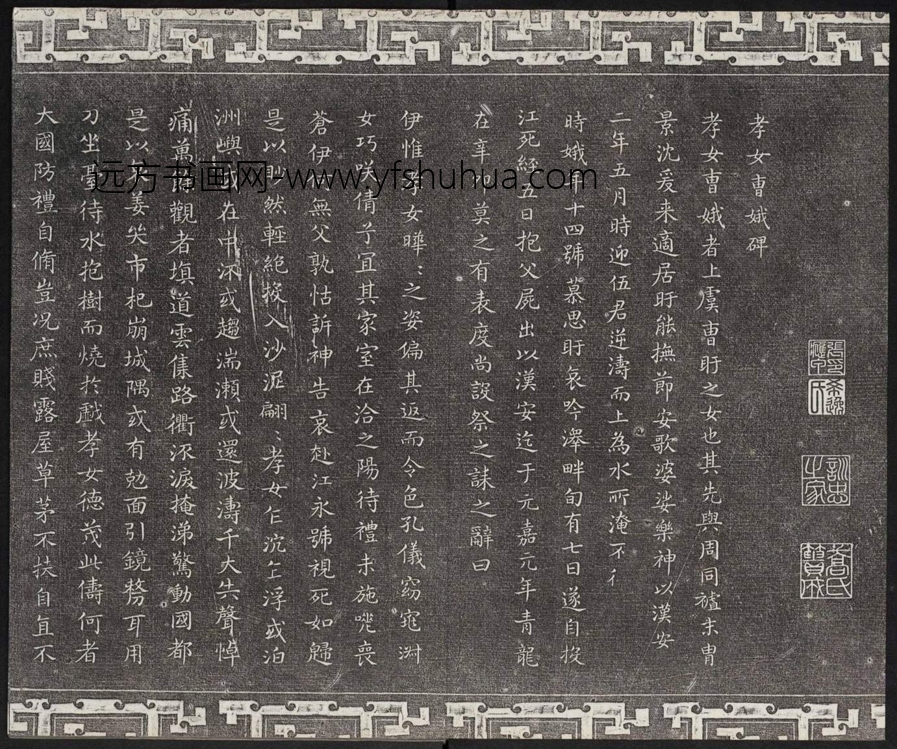 孝女曺娥碑
孝女曺娥者上虞曺盱之女也其先與周同䄛末胄
景沈爰来適居盱能撫節安歌婆娑樂神以漢安
二年五月時迎伍君逆濤而上為水所淹不
時娥年十四號慕思盱哀吟澤畔旬有七日遂自投
江死經五日抱父屍出以漢安迄于元嘉元年青龍
在辛卯莫之有表度尚設祭之誄之辭曰
伊惟孝女曄〻之姿偏其返而令色孔儀窈窕淑
女巧咲倩兮冝其家室在洽之陽待禮未施嗟喪
蒼伊何無父孰怙訴神告哀赴江永號視死如歸
是以眇然輕絶投入沙泥翩〻孝女乍沉乍浮或泊
洲嶼或在中流或趨湍瀬或還波濤千夫共聲悼
痛萬餘觀者填道雲集路衢泣淚掩涕驚動國都
是以哀姜哭市杞崩城隅或有勉面引鏡剺耳用
刀坐臺待水抱樹而燒扵戯孝女德茂此儔何者
大國防禮自脩豈况庶賤露屋草茅不扶自直不
訓忠之家
远方书画网-www.yfshuhua.com